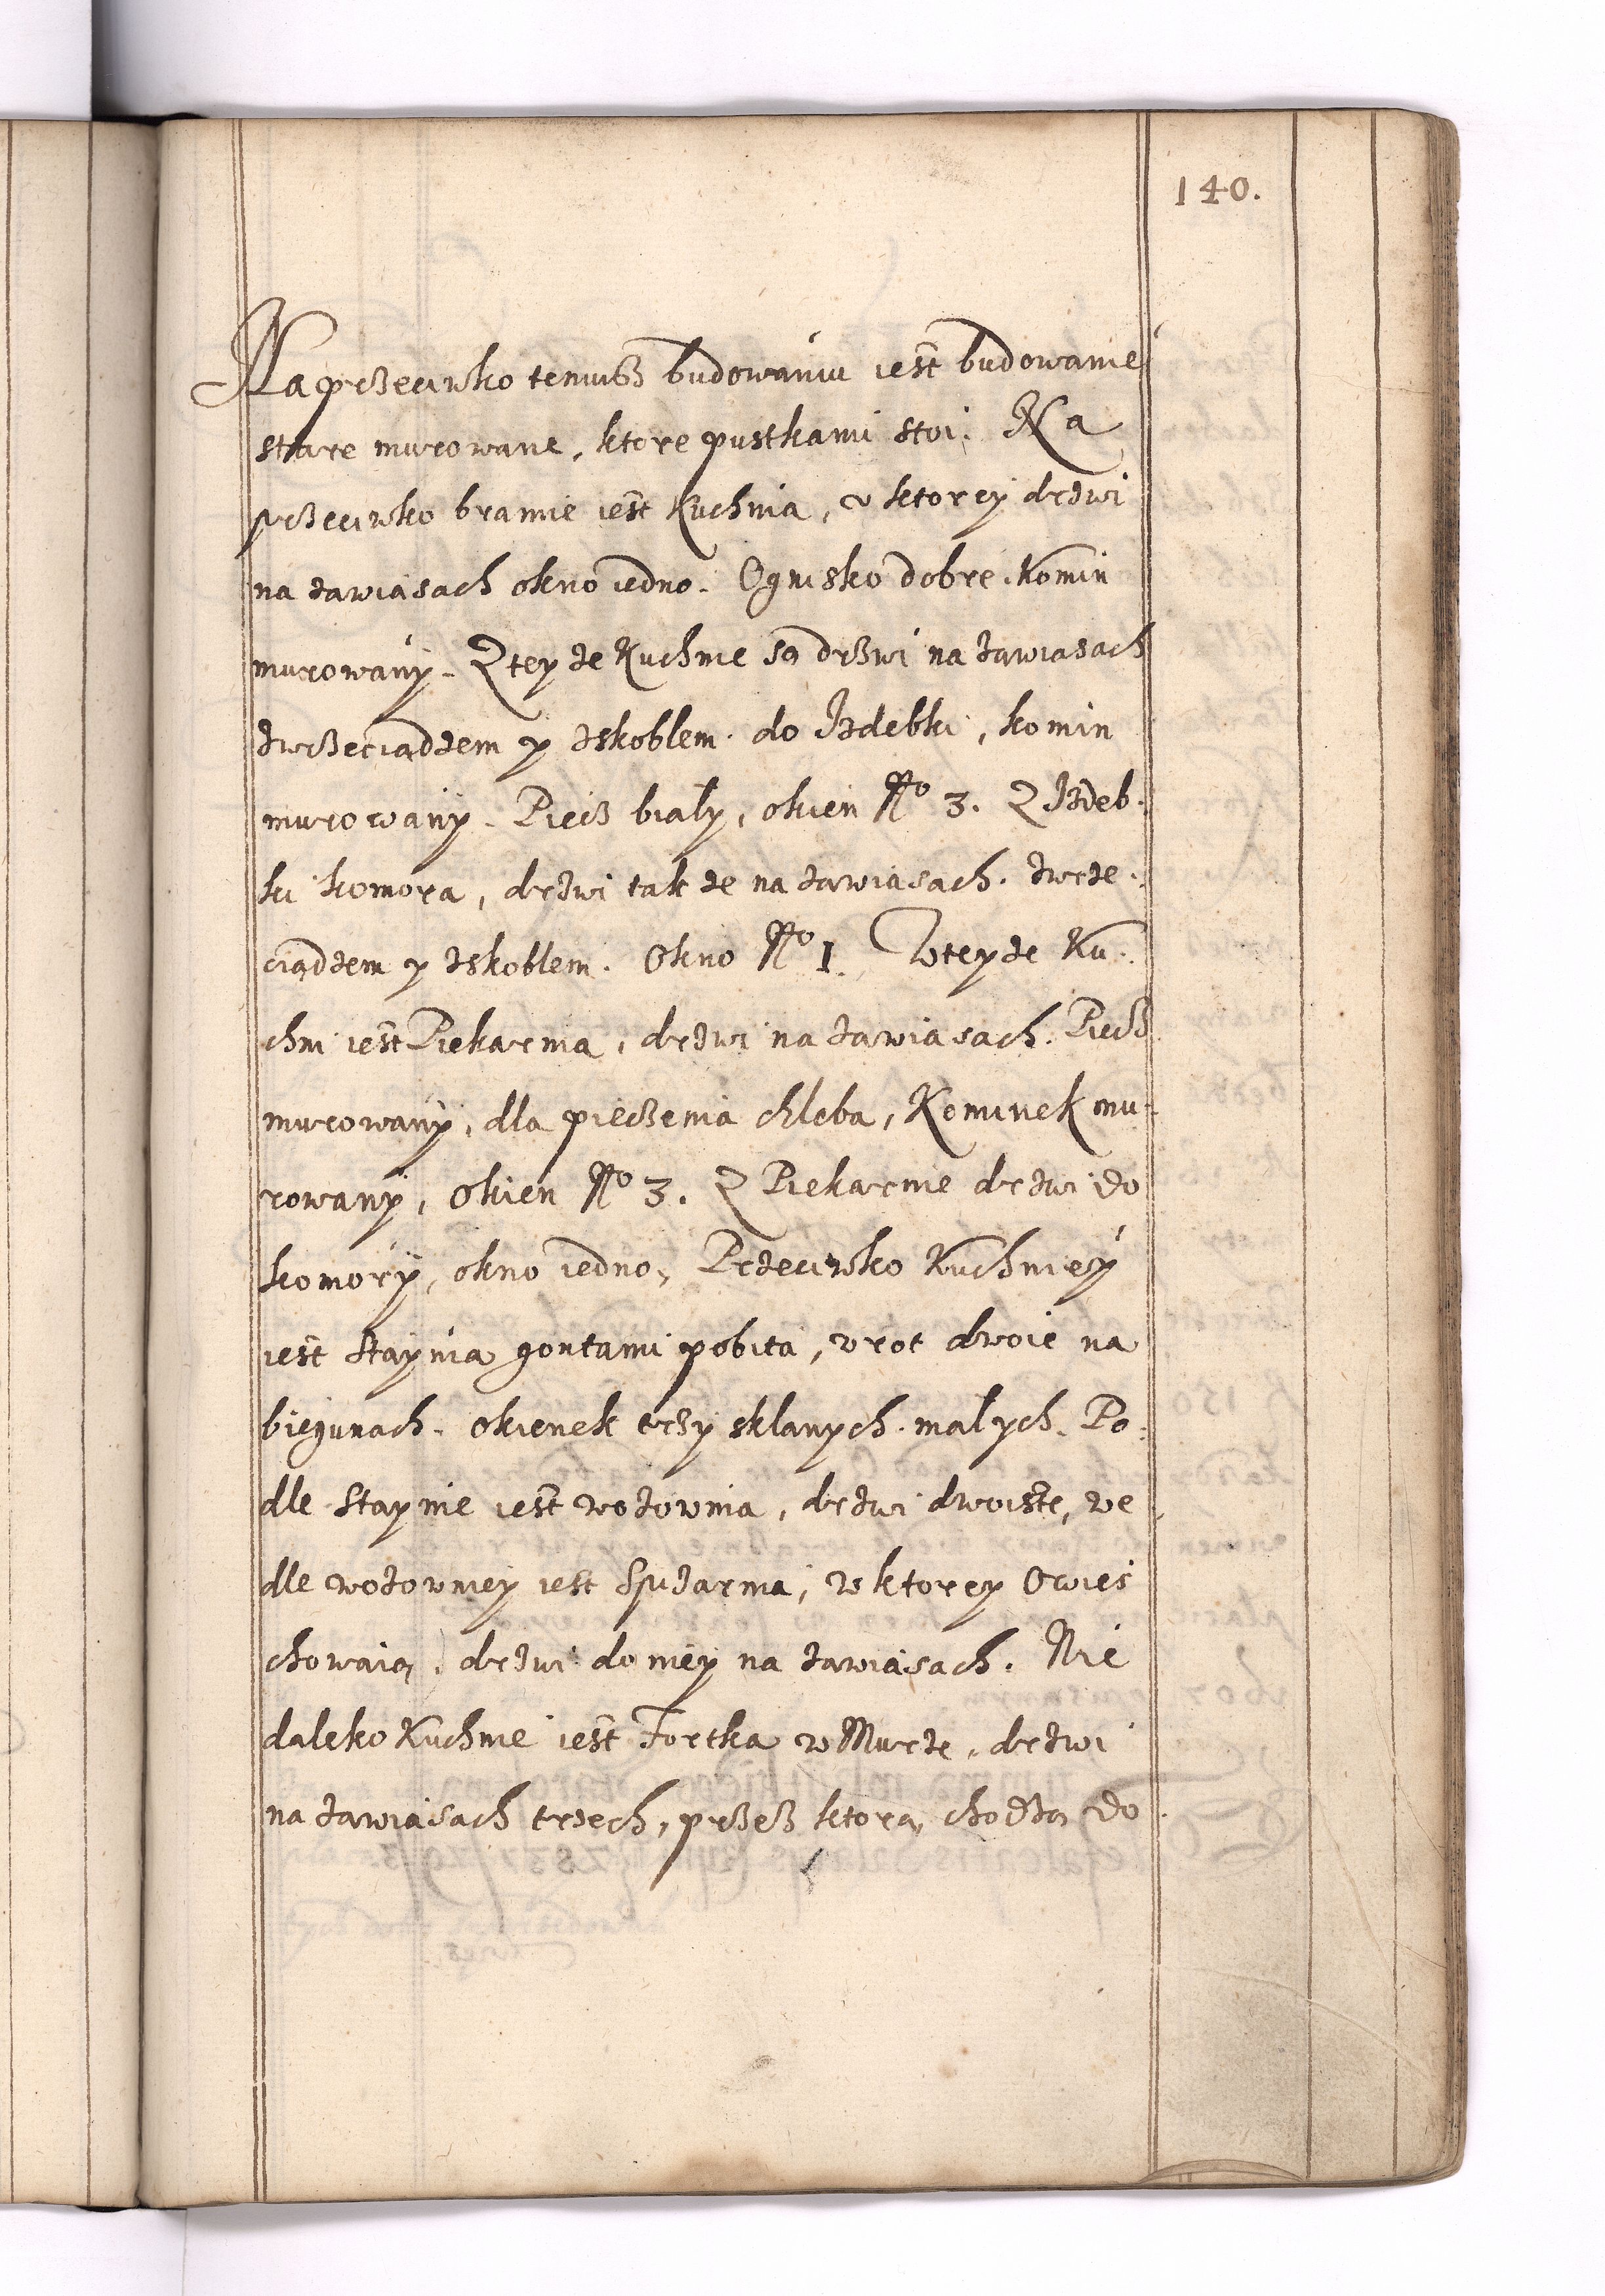 140.
Naprzeciwko temusz budowániu iest budowanie
stáre murowane, ktore pustkami stoi. Na
przeciwko bramie iest Kuchnia, v ktorey drzwi
na zawiasach okno iedno. Ognisko dobre. Komin
murowány. Z teyze Kuchnie są drzwi na zawiasach
zwrzeciądzem y zskoblem do Izdebki, komin
murowány. Piecz biały, okien No 3. Z Izdeb:
ki komora, drzwi takze na zawiasach. zwrze:
ciądzem y zskoblem. Okno No 1. Wteyze Ku:
chni iest Piekarnia, drzwi na zawiasach. Piecz
murowány, dla pieczenia chleba, Kominek mu:
rowany, Okien No 3. Z Piekarnie drzwi do
komorÿ, okno iedno, Przeciwko Kuchnieý
iest Stáynia gontami pobita, wrot dwoie na
biegunach. Okienek trzy sklanych małych. Po:
dle Stáynie iest wozownia, drzwi dwoiste, we
dle wozowniey iest Spizarnia, w ktorey Owies
chowaią, drzwi do niey na zawiasach. Nie
daleko Kuchnie iest Fortka w Murze, drzwi
na zawiasach trzech, przesz ktorą chodzą do